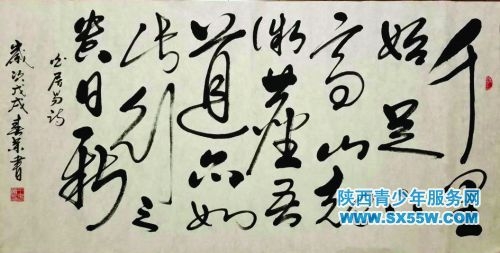 千里
始足下
高山起
微塵吾
道亦如
此行之
貴日新
白居易詩
歲次戊戌春書
陕西青少年服务网
WWW.SX55W.COM